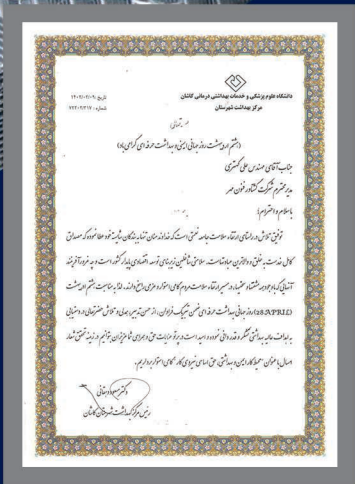 دانشگاه علوم پزشکی و خدمات بهداشتی درمانی کاشان
مرکز بهداشت شهرستان
تاریخ: ۱۴۰۲/۰۲/۰۹
شماره: ۷۲۲۰۲/۳۱۷
(هشتم اردیبهشت روز جهانی ایمنی و بهداشت حرفه ای گرامی باد)
جناب آقای مهندس علی گستری
مدیر محترم شرکت کشاور فنون عصر
باسلام و احترام؛
توفیق تلاش در راستای ارتقاء سلامت جامعه نعمتی است که خداوند منان تنها به بندگان شایسته خود عطا نموده که مصداق
کامل خدمت به خلق و والاترین عبادتهاست. سلامتی شاغلین زیربنای توسعه اقتصادی پایدار کشور است و چه غرور آفرینند
آنهایی که باوجود همه در مسیر ارتقاء سلامت مردم گامی استوار و عزمی راسخ دارند. لذا به مناسبت هشتم اردیبهشت
(28APRIL) روز جهانی بهداشت حرفه ای ضمن تبریک فراوان، از حسن تدبیر، همدلی و تلاش حضرتعالی در دستیابی
به اهداف عالیه بهداشتی تشکر و قدردانی نموده و امید است در پرتو عنایات حق و همراهی شما عزیزان بتوانیم در زمینه تحقق شعار
امسال با عنوان "محیط کار ایمن و بهداشتی، حق اساسی نیروی کار" گامی استوار برداریم.
دکتر مسعود دهقانی
رئیس مرکز بهداشت شهرستان کاشان